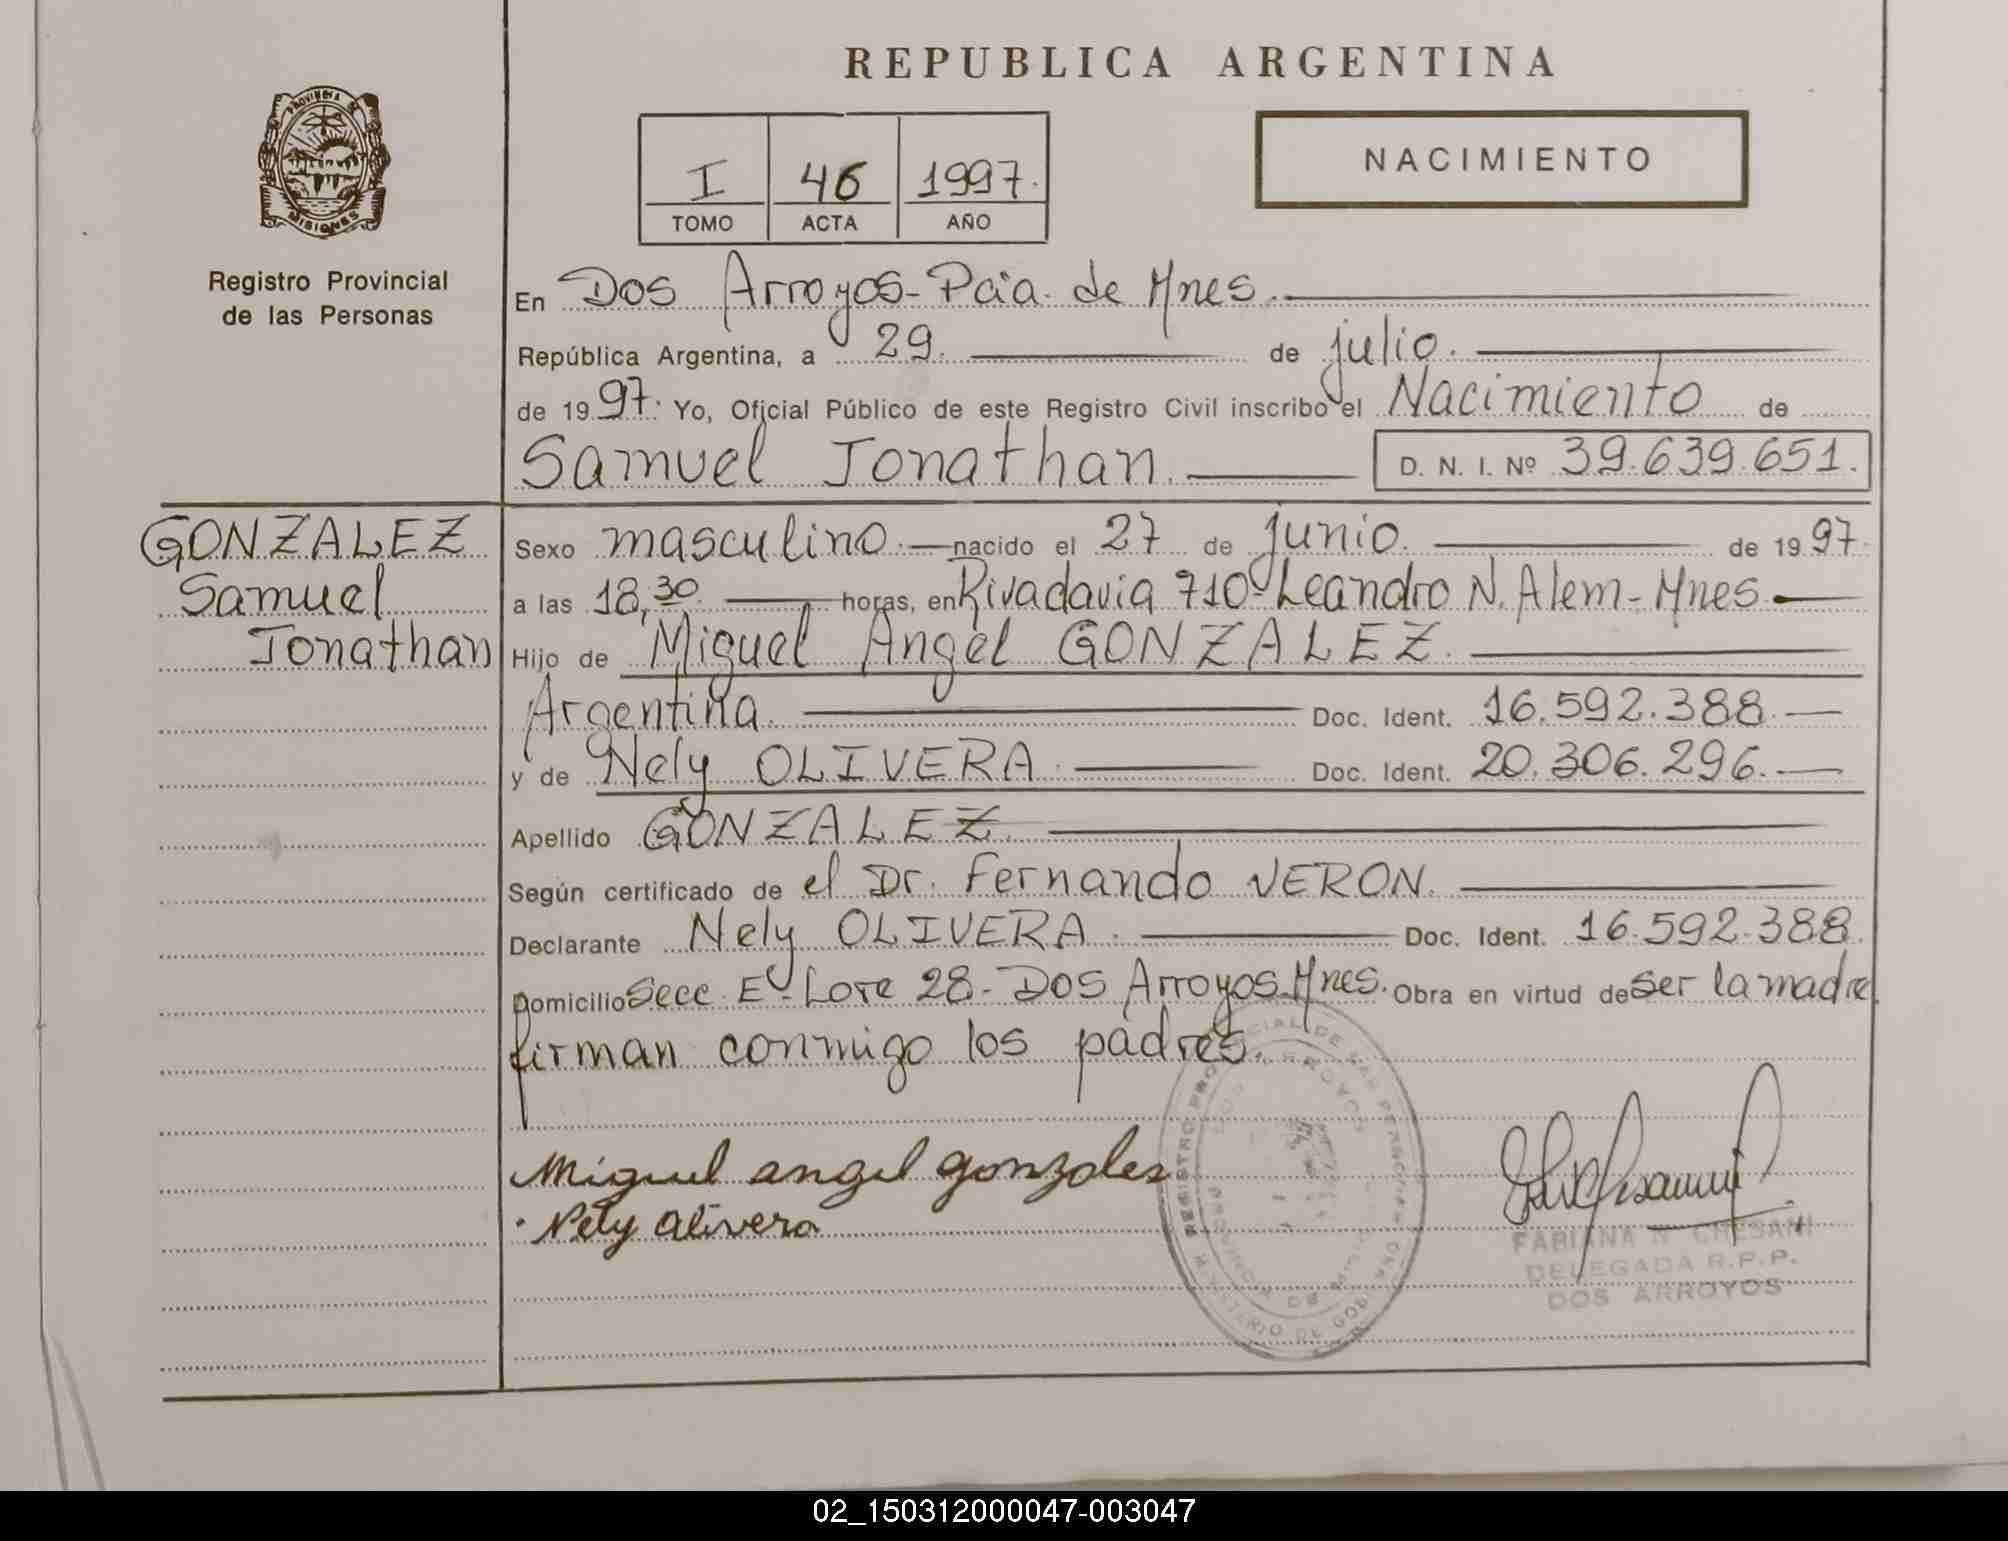 REPUBLICA ARGENTINA
PROVINCIA DE
MISIONES
Registro Provincial
de las Personas
I 46 1997.
TOMO ACTA AÑO
NACIMIENTO
En Dos Arroyos-Pcia. de Mnes.
República Argentina, a 29. de julio.
de 1997. Yo, Oficial Público de este Registro Civil inscribo el Nacimiento de
Samuel Jonathan. D. N. I. Nº 39.639.651.
GONZALEZ
Samuel
Jonathan
Sexo masculino. nacido el 27 de junio. de 1997.
a las 18,30. horas, en Rivadavia 710-Leandro N. Alem-Mnes.
Hijo de Miguel Angel GONZALEZ.
Argentina. Doc. Ident. 16.592.388.
y de Nely OLIVERA. Doc. Ident. 20.306.296.
Apellido GONZALEZ.
Según certificado de el Dr. Fernando VERON.
Declarante Nely OLIVERA. Doc. Ident. 16.592.388.
Domicilio Secc. E-Lote 28-Dos Arroyos-Mnes. Obra en virtud de ser la madre
firman conmigo los padres.
Miguel angel gonzales
Nely Olivera
REGISTRO PROVINCIAL DE LAS PERSONAS
DOS ARROYOS
PROVINCIA DE MISIONES
MINISTERIO DE GOBIERNO
FABIANA N CHESANI
DELEGADA R.P.P.
DOS ARROYOS
02_150312000047-003047